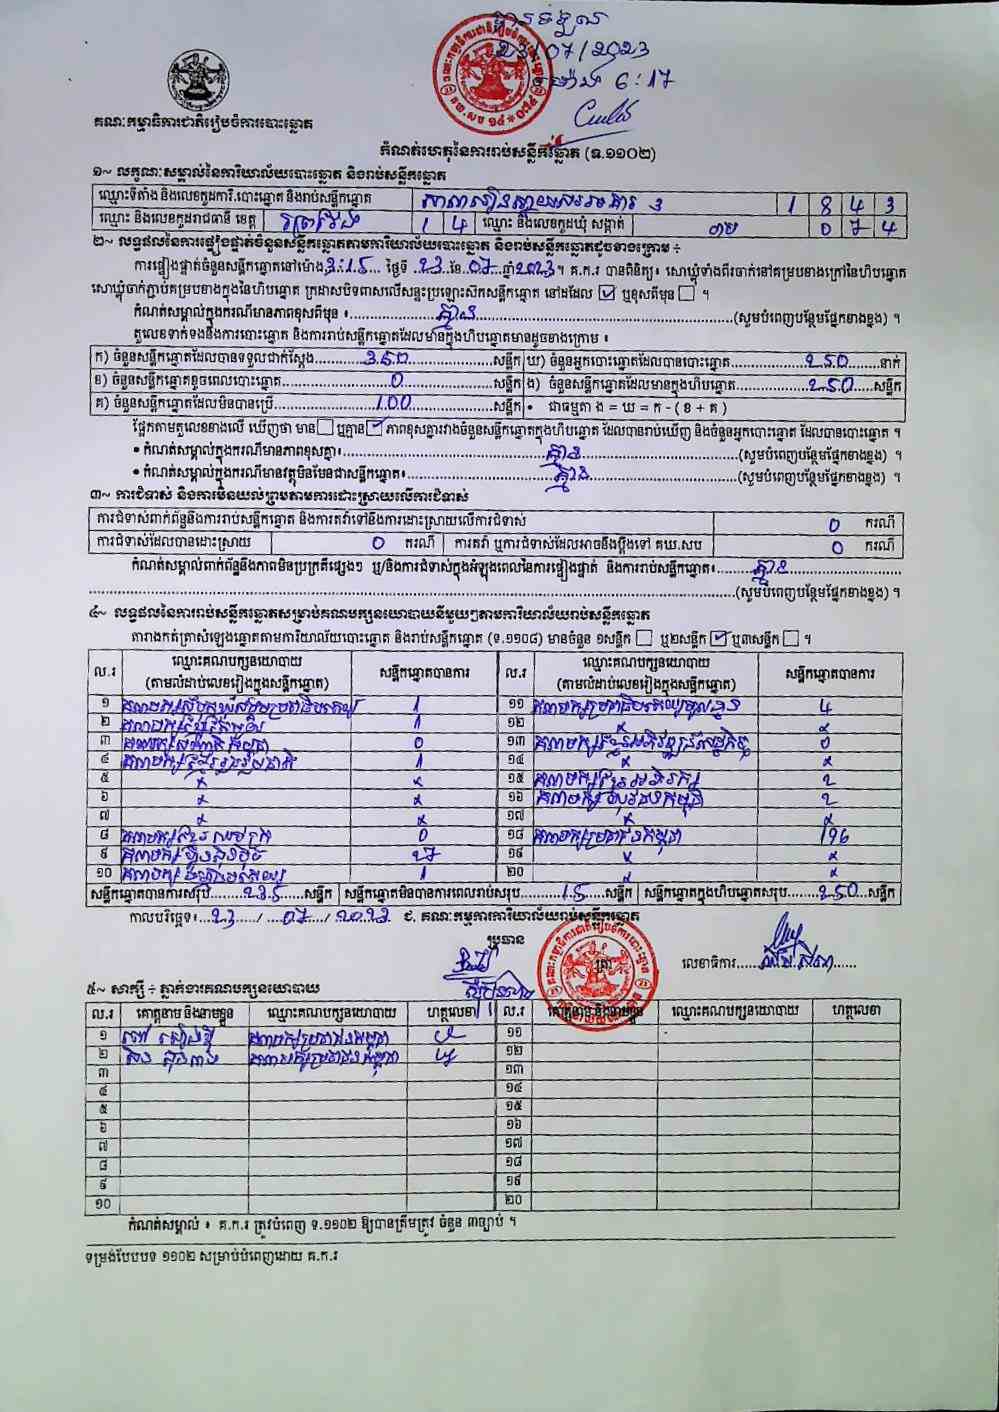 ការទទួល
23/07/2023
ម៉ោង 6:17
គណៈកម្មាធិការជាតិរៀបចំការបោះឆ្នោត
កំណត់ហេតុនៃការរាប់សន្លឹកឆ្នោត (ទ.១១០២)
១~ លក្ខណៈសម្គាល់នៃការិយាល័យបោះឆ្នោត និងរាប់សន្លឹកឆ្នោត
ឈ្មោះទីតាំង និងលេខកូដការិ.បោះឆ្នោត និងរាប់សន្លឹកឆ្នោត 1 8 4 3
ឈ្មោះ និងលេខកូដរាជធានី ខេត្ត ព្រៃវែង 1 4 ឈ្មោះ និងលេខកូដឃុំ សង្កាត់ 0 7 4
២~ លទ្ធផលនៃការផ្ទៀងផ្ទាត់ចំនួនសន្លឹកឆ្នោតតាមការិយាល័យបោះឆ្នោត និងរាប់សន្លឹកឆ្នោតដូចខាងក្រោម ÷
ការផ្ទៀងផ្ទាត់ចំនួនសន្លឹកឆ្នោតនៅម៉ោង 3:15 ថ្ងៃទី 23 ខែ 07 ឆ្នាំ 2023។ គ.ក.រ បានពិនិត្យ៖ សោឃ្លុំទាំងពីរចាក់នៅគម្របខាងក្រៅនៃហិបឆ្នោត
សោឃ្លុំចាក់ភ្ជាប់គម្របខាងក្នុងនៃហិបឆ្នោត ក្រដាសបិទពាសលើសន្ទះប្រឡោះសឹកសន្លឹកឆ្នោត នៅដដែល ☑ ឬខុសពីមុន ☐ ។
កំណត់សម្គាល់ក្នុងករណីមានភាពខុសពីមុន ៖ គ្មាន (សូមបំពេញបន្ថែមផ្នែកខាងខ្នង) ។
តួលេខទាក់ទងនឹងការបោះឆ្នោត និងការរាប់សន្លឹកឆ្នោតដែលមានក្នុងហិបឆ្នោតមានដូចខាងក្រោម ៖
ក) ចំនួនសន្លឹកឆ្នោតដែលបានទទួលជាក់ស្តែង 350 សន្លឹក ឃ) ចំនួនអ្នកបោះឆ្នោតដែលបានបោះឆ្នោត 250 នាក់
ខ) ចំនួនសន្លឹកឆ្នោតខូចពេលបោះឆ្នោត 0 សន្លឹក ង) ចំនួនសន្លឹកឆ្នោតដែលមានក្នុងហិបឆ្នោត 250 សន្លឹក
គ) ចំនួនសន្លឹកឆ្នោតដែលមិនបានប្រើ 100 សន្លឹក • ជាធម្មតា ង = ឃ = ក - ( ខ + គ )
ផ្អែកតាមតួលេខខាងលើ ឃើញថា មាន ☐ ឬគ្មាន ☑ ភាពខុសគ្នារវាងចំនួនសន្លឹកឆ្នោតក្នុងហិបឆ្នោត ដែលបានរាប់ឃើញ និងចំនួនអ្នកបោះឆ្នោត ដែលបានបោះឆ្នោត ។
• កំណត់សម្គាល់ក្នុងករណីមានភាពខុសគ្នា៖ គ្មាន (សូមបំពេញបន្ថែមផ្នែកខាងខ្នង) ។
• កំណត់សម្គាល់ក្នុងករណីមានវត្ថុមិនមែនជាសន្លឹកឆ្នោត៖ គ្មាន (សូមបំពេញបន្ថែមផ្នែកខាងខ្នង) ។
៣~ ការជំទាស់ និងការមិនយល់ព្រមតាមការដោះស្រាយលើការជំទាស់
ការជំទាស់ពាក់ព័ន្ធនឹងការរាប់សន្លឹកឆ្នោត និងការតវ៉ាទៅនឹងការដោះស្រាយលើការជំទាស់ 0 ករណី
ការជំទាស់ដែលបានដោះស្រាយ 0 ករណី ការតវ៉ា ឬការជំទាស់ដែលអាចនឹងប្តឹងទៅ គឃ.សប 0 ករណី
កំណត់សម្គាល់ពាក់ព័ន្ធនឹងភាពមិនប្រក្រតីផ្សេងៗ ឬ/និងការជំទាស់ក្នុងអំឡុងពេលនៃការផ្ទៀងផ្ទាត់ និងការរាប់សន្លឹកឆ្នោត៖ គ្មាន
(សូមបំពេញបន្ថែមផ្នែកខាងខ្នង) ។
៤~ លទ្ធផលនៃការរាប់សន្លឹកឆ្នោតសម្រាប់គណបក្សនយោបាយនីមួយៗតាមការិយាល័យរាប់សន្លឹកឆ្នោត
តារាងកត់ត្រាសំឡេងឆ្នោតតាមការិយាល័យបោះឆ្នោត និងរាប់សន្លឹកឆ្នោត (ទ.១១០៨) មានចំនួន ១សន្លឹក ☐ ឬ២សន្លឹក ☑ ឬ៣សន្លឹក ☐ ។
ល.រ ឈ្មោះគណបក្សនយោបាយ សន្លឹកឆ្នោតបានការ ល.រ ឈ្មោះគណបក្សនយោបាយ សន្លឹកឆ្នោតបានការ
(តាមលំដាប់លេខរៀងក្នុងសន្លឹកឆ្នោត) (តាមលំដាប់លេខរៀងក្នុងសន្លឹកឆ្នោត)
១ គណបក្ស 1 ១១ គណបក្ស 4
២ គណបក្ស 1 ១២ x x
៣ គណបក្ស 0 ១៣ គណបក្ស 0
៤ គណបក្ស 1 ១៤ x x
៥ x x ១៥ គណបក្ស 2
៦ x x ១៦ គណបក្ស 2
៧ x x ១៧ x x
៨ គណបក្ស 0 ១៨ គណបក្សប្រជាជនកម្ពុជា 196
៩ គណបក្សហ៊្វុនស៊ិនប៉ិច 27 ១៩ x x
១០ គណបក្ស 1 ២០ x x
សន្លឹកឆ្នោតបានការសរុប 235 សន្លឹក សន្លឹកឆ្នោតមិនបានការពេលរាប់សរុប 15 សន្លឹក សន្លឹកឆ្នោតក្នុងហិបឆ្នោតសរុប 250 សន្លឹក
កាលបរិច្ឆេទ៖ 23 / 07 / 2023 ៩. គណៈកម្មការការិយាល័យរាប់សន្លឹកឆ្នោត
ប្រធាន
ត្រា លេខាធិការ
៥~ សាក្សី ÷ ភ្នាក់ងារគណបក្សនយោបាយ
ល.រ គោត្តនាម និងនាមខ្លួន ឈ្មោះគណបក្សនយោបាយ ហត្ថលេខា ល.រ គោត្តនាម និងនាមខ្លួន ឈ្មោះគណបក្សនយោបាយ ហត្ថលេខា
១ គណបក្សប្រជាជនកម្ពុជា ១១
២ គណបក្សប្រជាជនកម្ពុជា ១២
៣ ១៣
៤ ១៤
៥ ១៥
៦ ១៦
៧ ១៧
៨ ១៨
៩ ១៩
១០ ២០
កំណត់សម្គាល់ ៖ គ.ក.រ ត្រូវបំពេញ ទ.១១០២ ឱ្យបានត្រឹមត្រូវ ចំនួន ៣ច្បាប់ ។
ទម្រង់បែបបទ ១១០២ សម្រាប់បំពេញដោយ គ.ក.រ